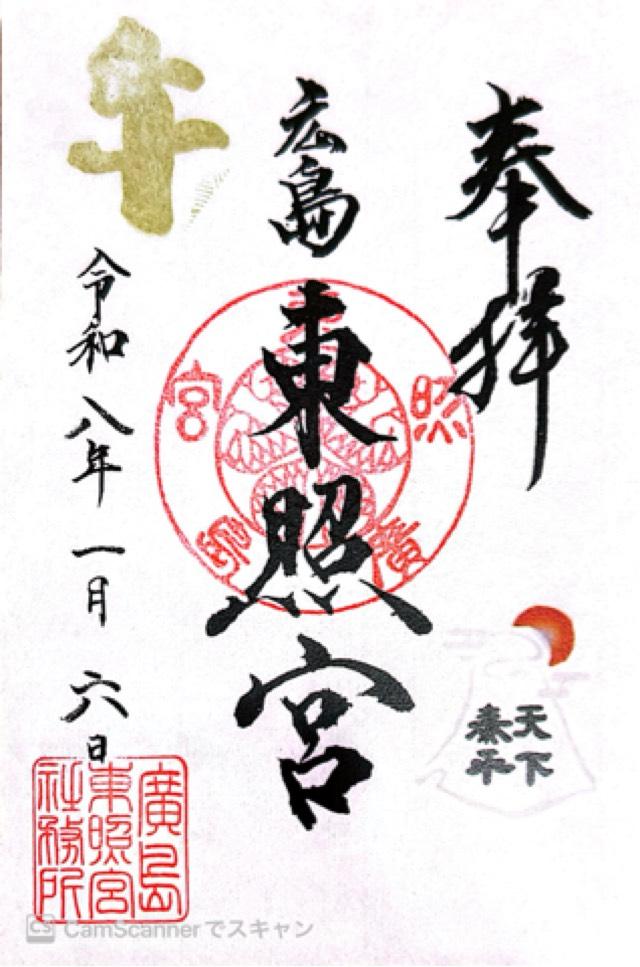 奉拝
天下
泰平
広島東照宮
照
宮
午
令和八年一月六日
廣島
東照宮
社務所
CS CamScannerでスキャン